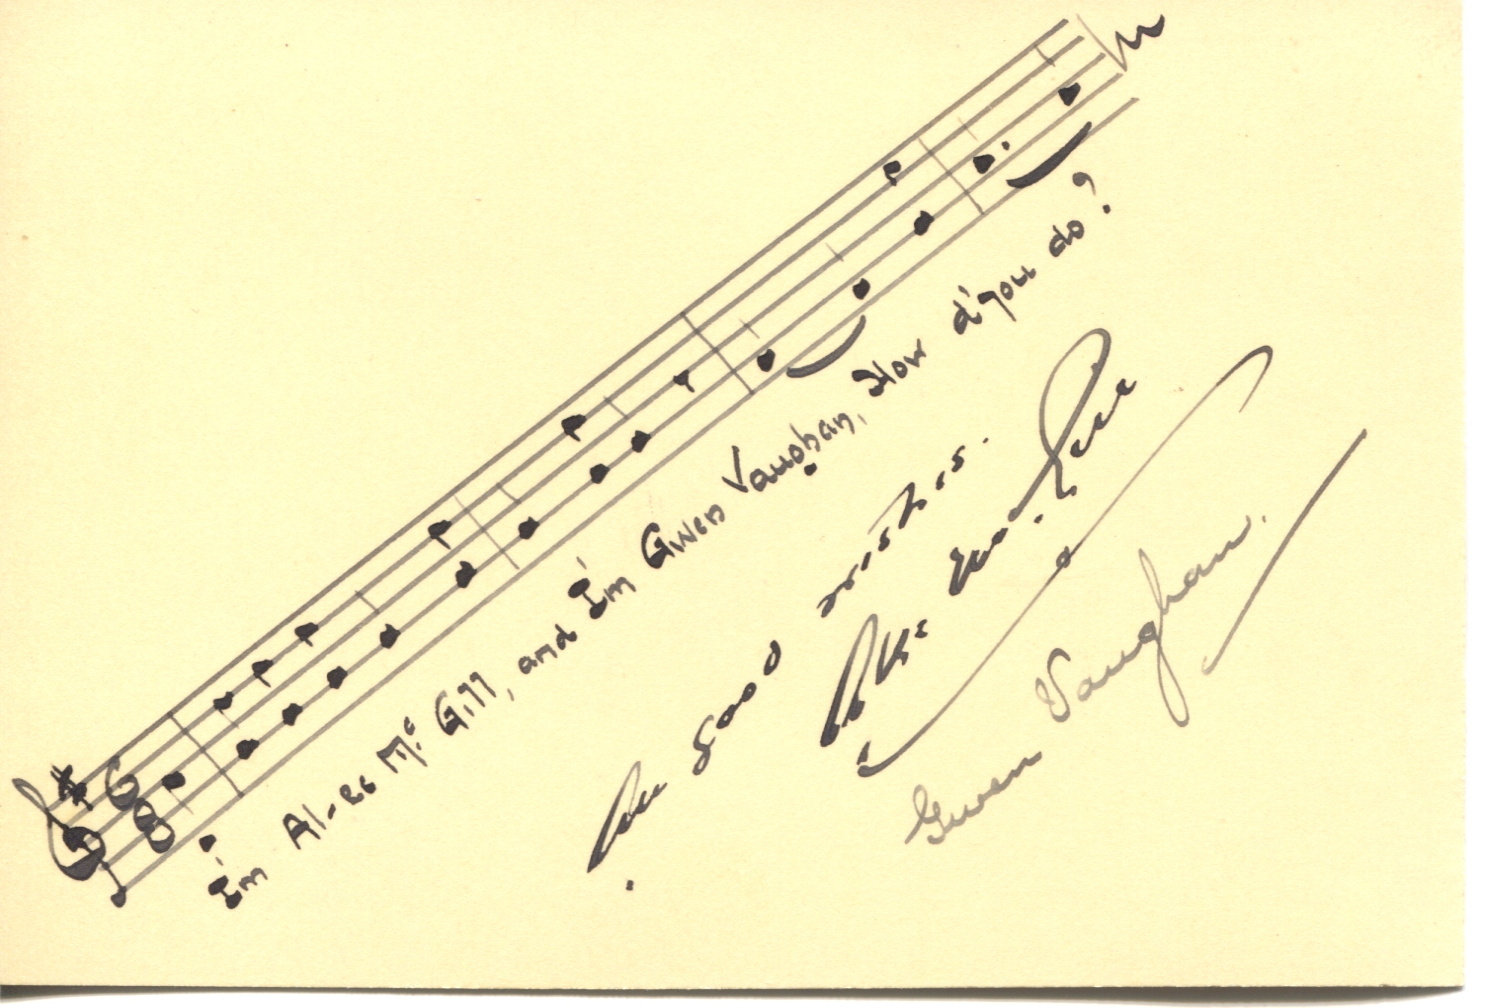 I'm Al-ec Mc Gill, and I'm Gwen Vaughan, How d'you do?
All good wishes.
Alec McGill
Gwen Vaughan.